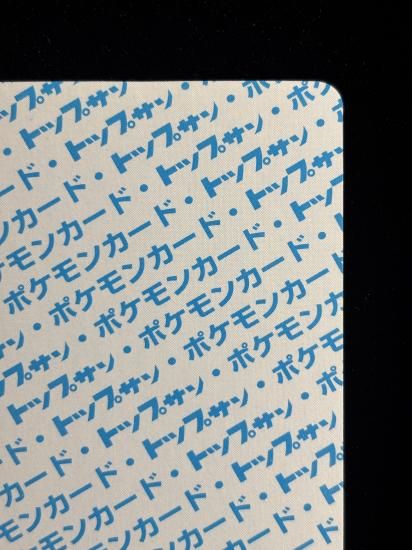 トップサン
・トップサン・ポ
ード・トップサン・ポケ
カード・トップサン・
ンカード・トップサン
モンカード・トップサン
ケモンカード・トップ
ポケモンカード・ト
ポケモンカード・
・ポケモンカード
ン・ポケモンカード
サン・ポケモンカ
プサン・ポケモン
トップサン・ポケモ
トップサン・ポ
・トップサン・
ド・トップサン
カード・トップサン
ンカード・トップ
モンカード・